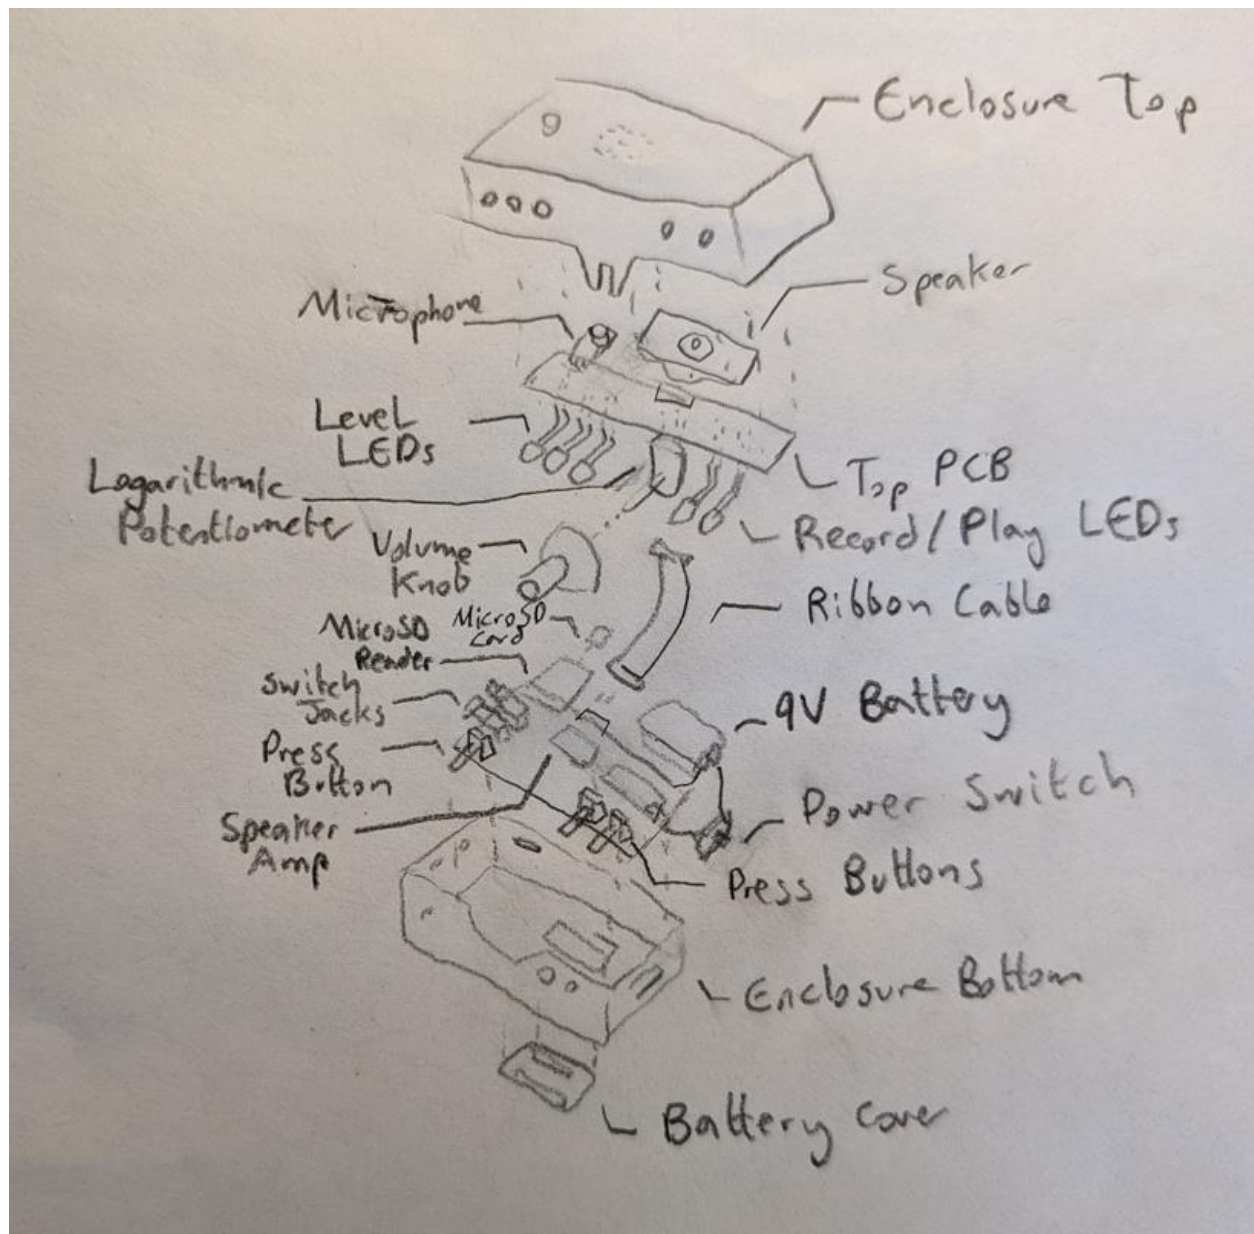 Enclosure Top
Speaker
Microphone
Level
LEDs
Logarithmic
Potentiometer
Top PCB
Record/Play LEDs
Volume
Knob
Ribbon Cable
MicroSD
Card
MicroSD
Reader
Switch
Jacks
9V Battery
Press
Button
Power Switch
Speaker
Amp
Press Buttons
Enclosure Bottom
Battery Cover